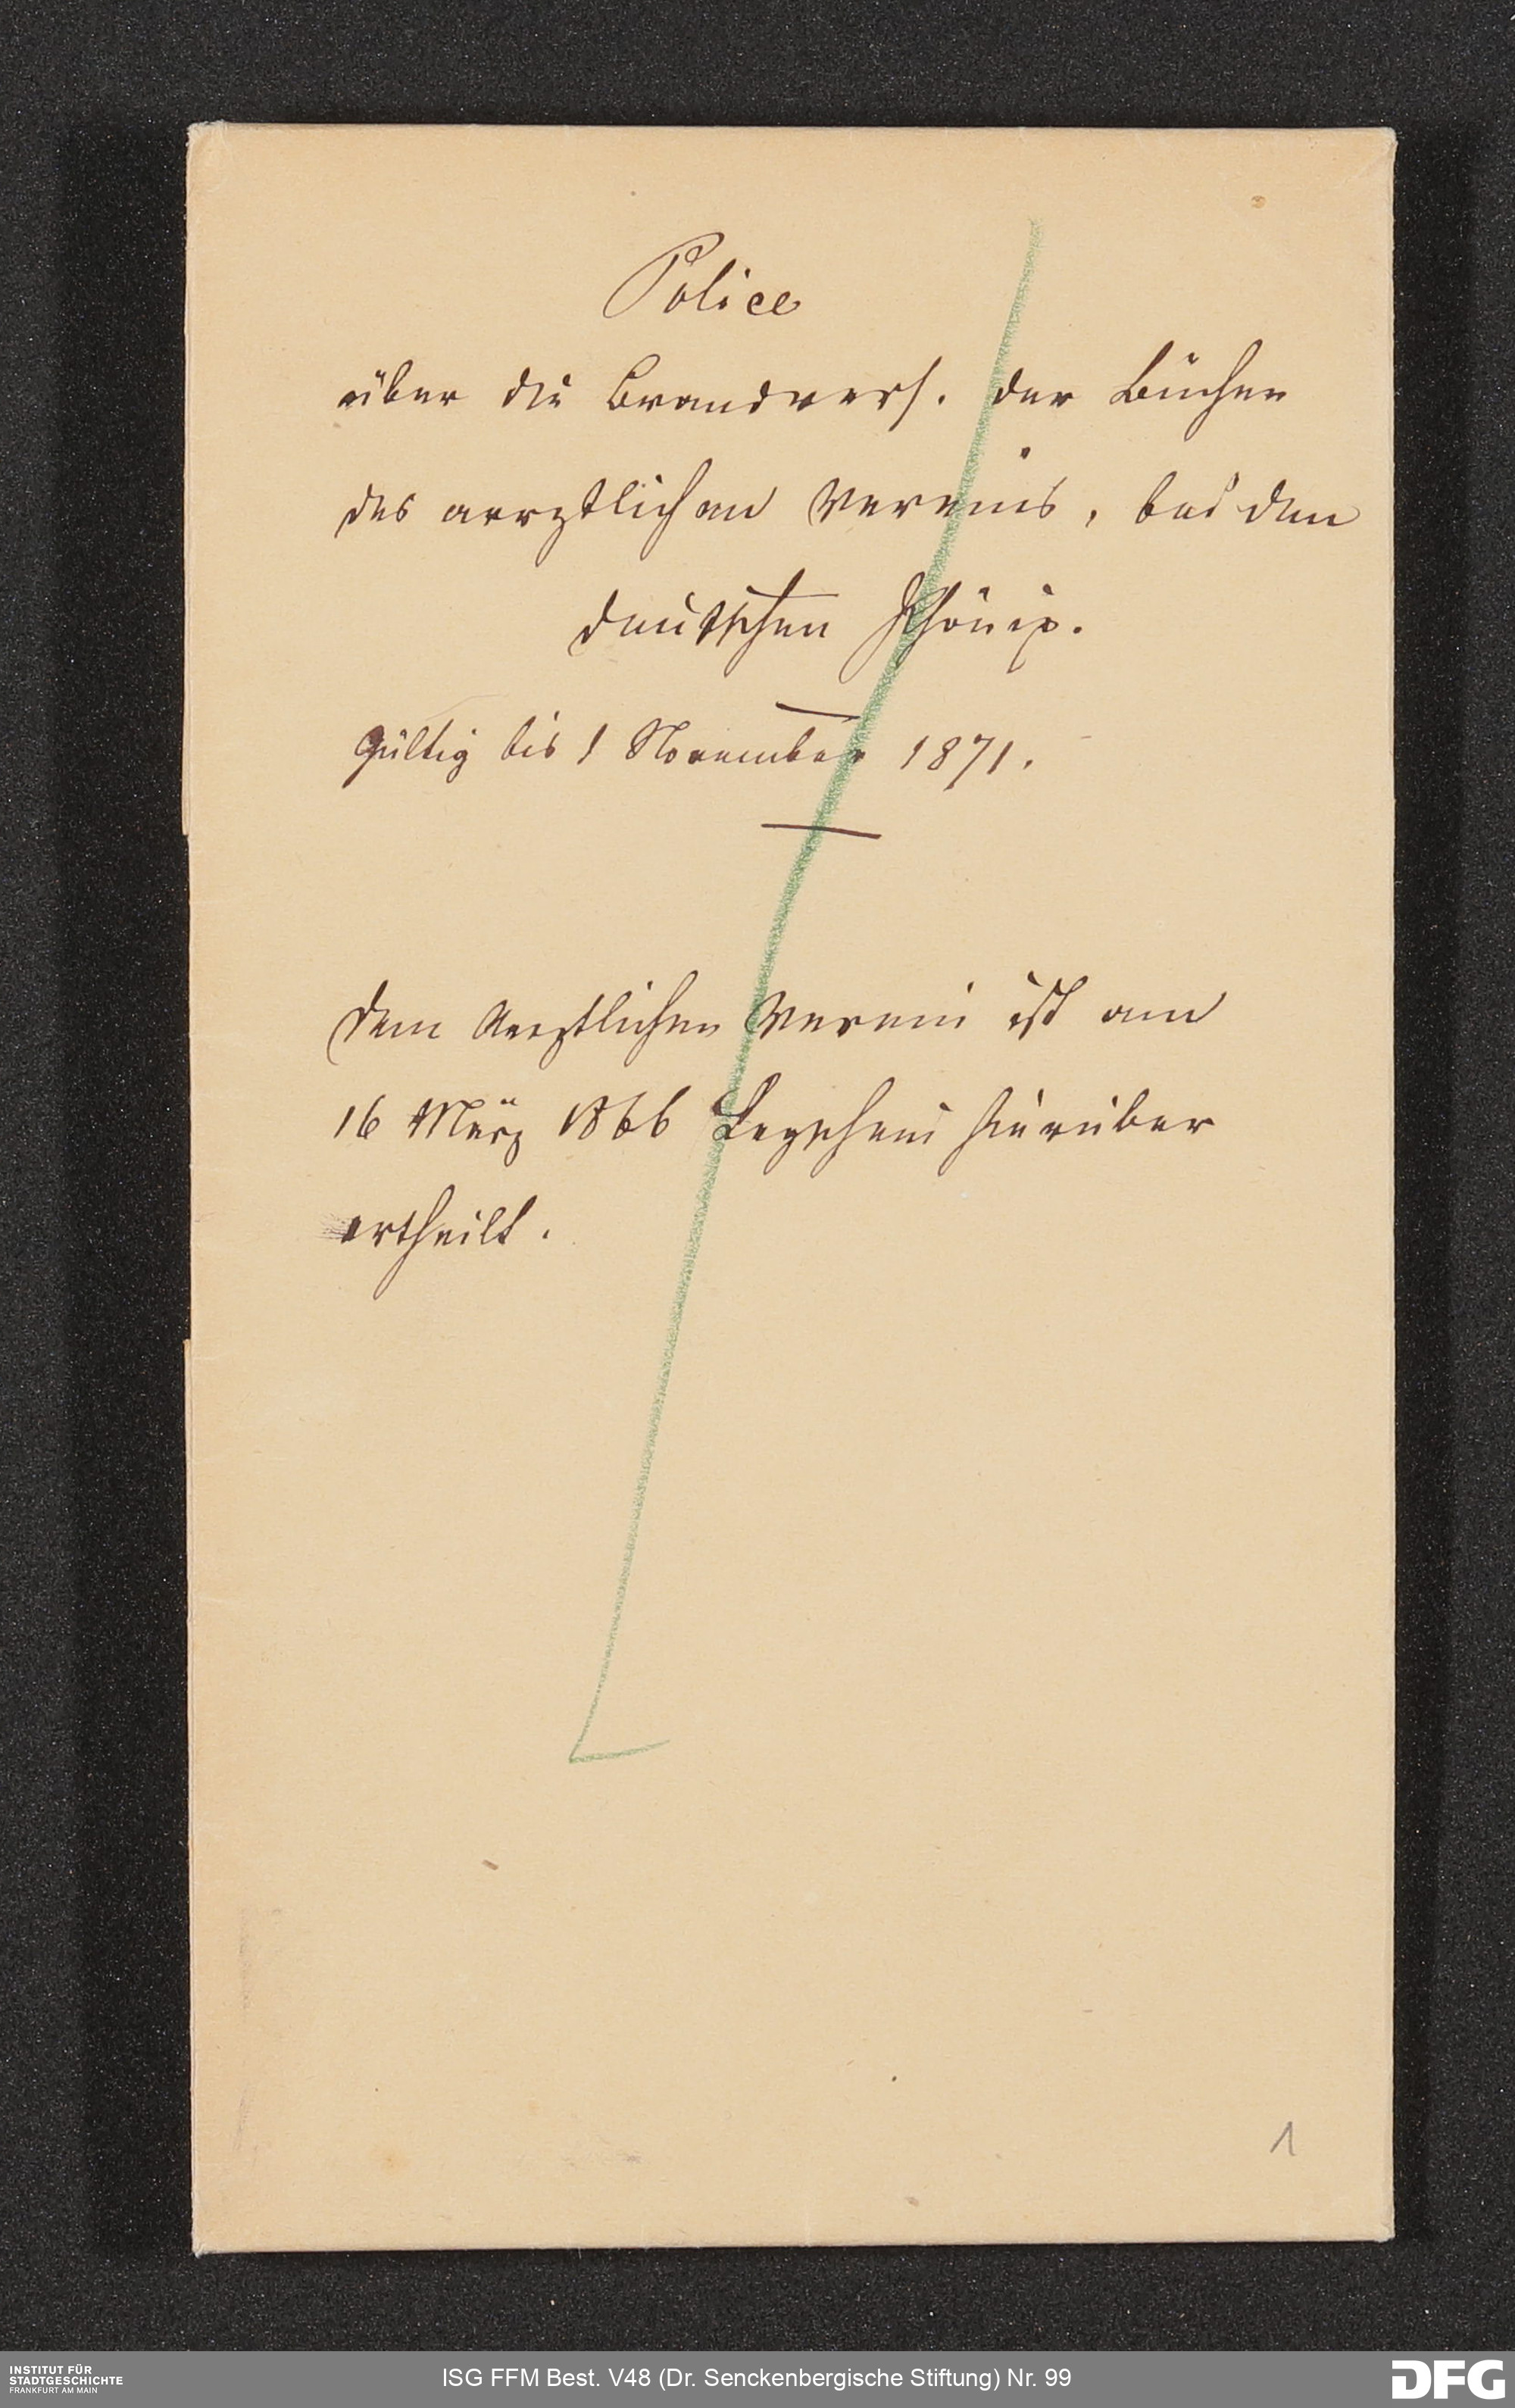 Police
über die Brandvers. der Bücher
des aerztlichen Vereins, bei dem
deutschen Phönix.
Gültig bis 1 November 1871.
Dem Aerztlichen Verein ist am
16 März 1866 Legschein hierüber
ertheilt.
1
INSTITUT FÜR
STADTGESCHICHTE
FRANKFURT AM MAIN
ISG FFM Best. V48 (Dr. Senckenbergische Stiftung) Nr. 99
DFG